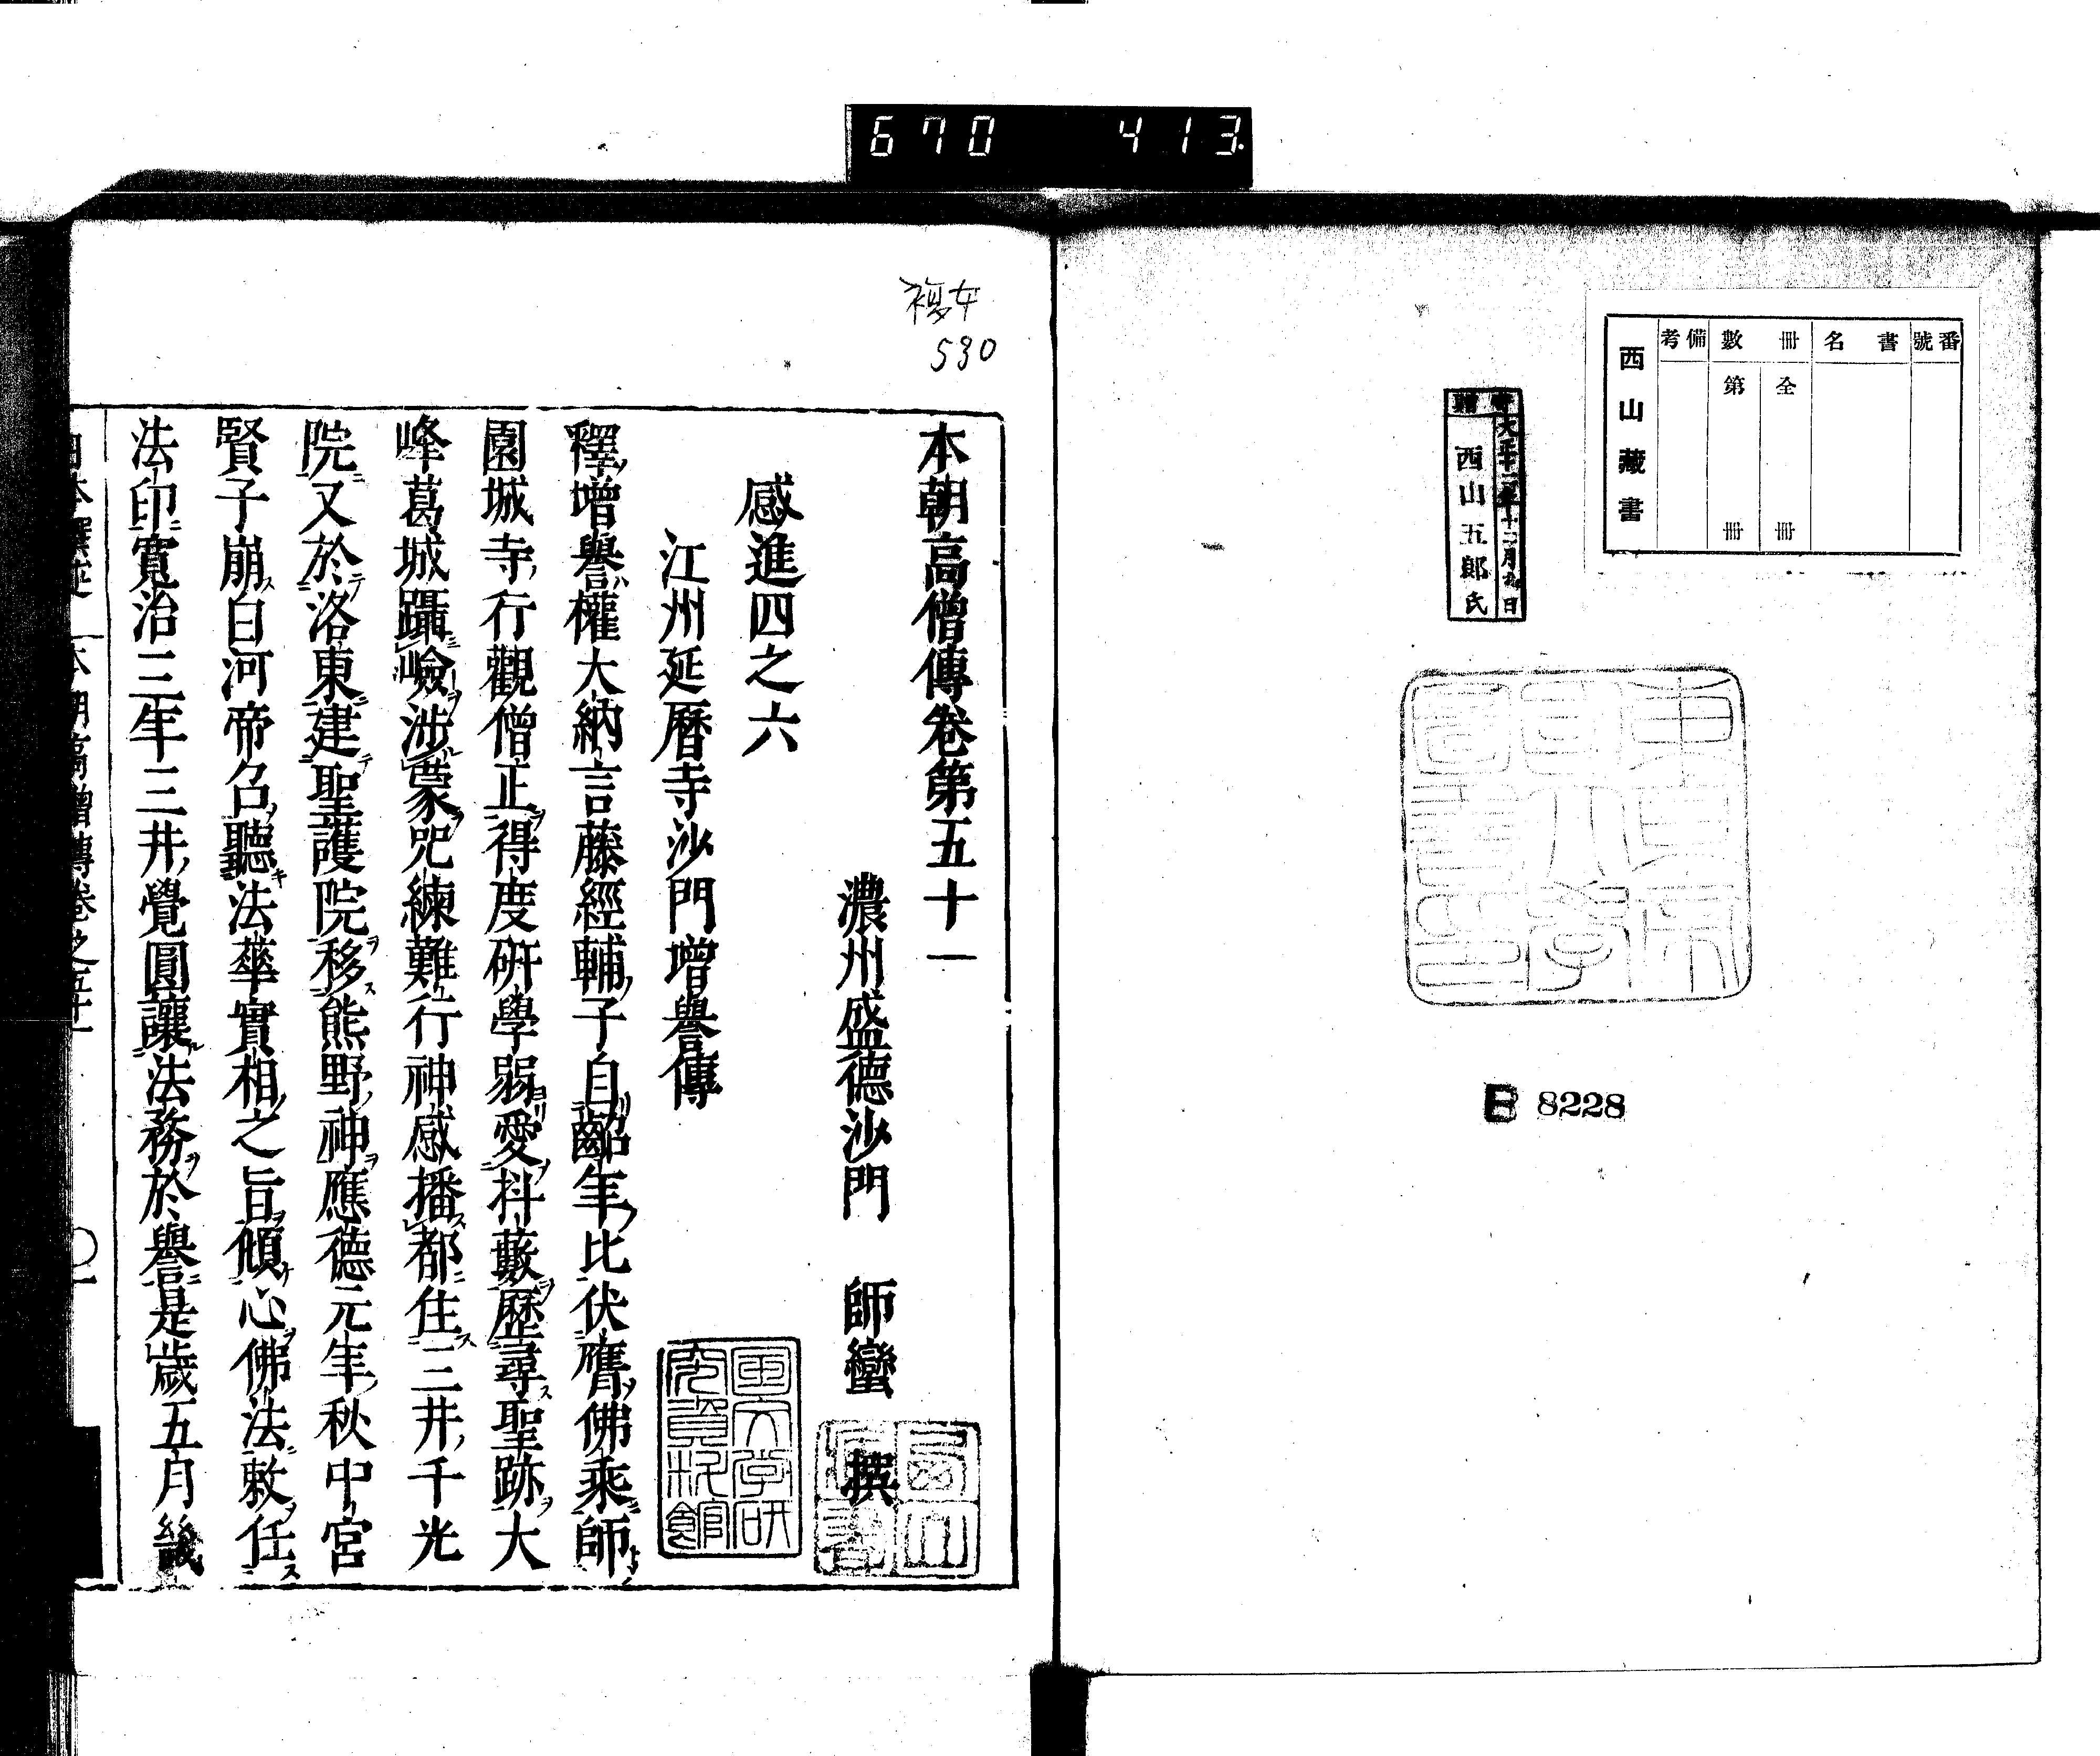 670 413
番號
書名
冊數
備考
全 冊
第 冊
西山藏書
大正十二年十二月九日
西山五郎氏
東京帝國大學圖書印
B 8228
複女
530
本朝高僧傳卷第五十一
濃州盛德沙門 師蠻 撰
感進四之六
江州延曆寺沙門增譽傳
釋增譽權大納言藤經輔子自齠年比伏膺佛乘師
園城寺行觀僧正得度硏學弱愛抖藪歷尋聖跡大
峰葛城躡嶮涉蒙咒練難行神感播都住三井千光
院又於洛東建聖護院移熊野神應德元年秋中宮
賢子崩白河帝召聽法華實相之旨傾心佛法敕任
法印寬治三年三井覺圓讓法務於譽是歲五月幾
本朝高僧傳卷之五十一
國文学研究資料館